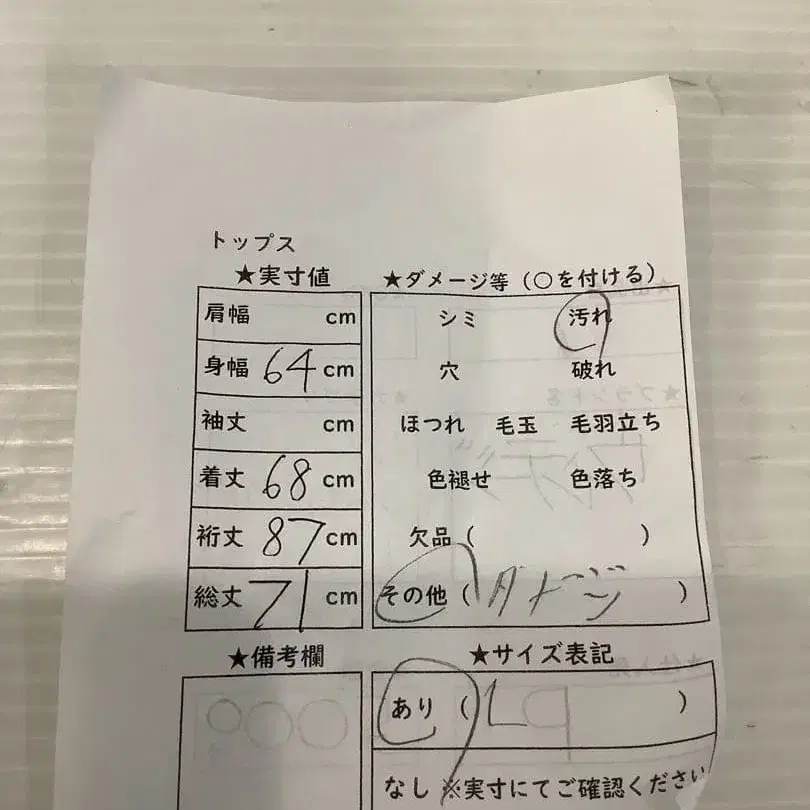 トップス
★実寸値
肩幅 cm
身幅 64 cm
袖丈 cm
着丈 68 cm
裄丈 87 cm
総丈 71 cm
★ダメージ等（○を付ける）
シミ 汚れ
穴 破れ
ほつれ 毛玉 毛羽立ち
色褪せ 色落ち
欠品（ ）
その他（ダメージ）
★備考欄
★サイズ表記
あり（L ）
なし ※実寸にてご確認ください